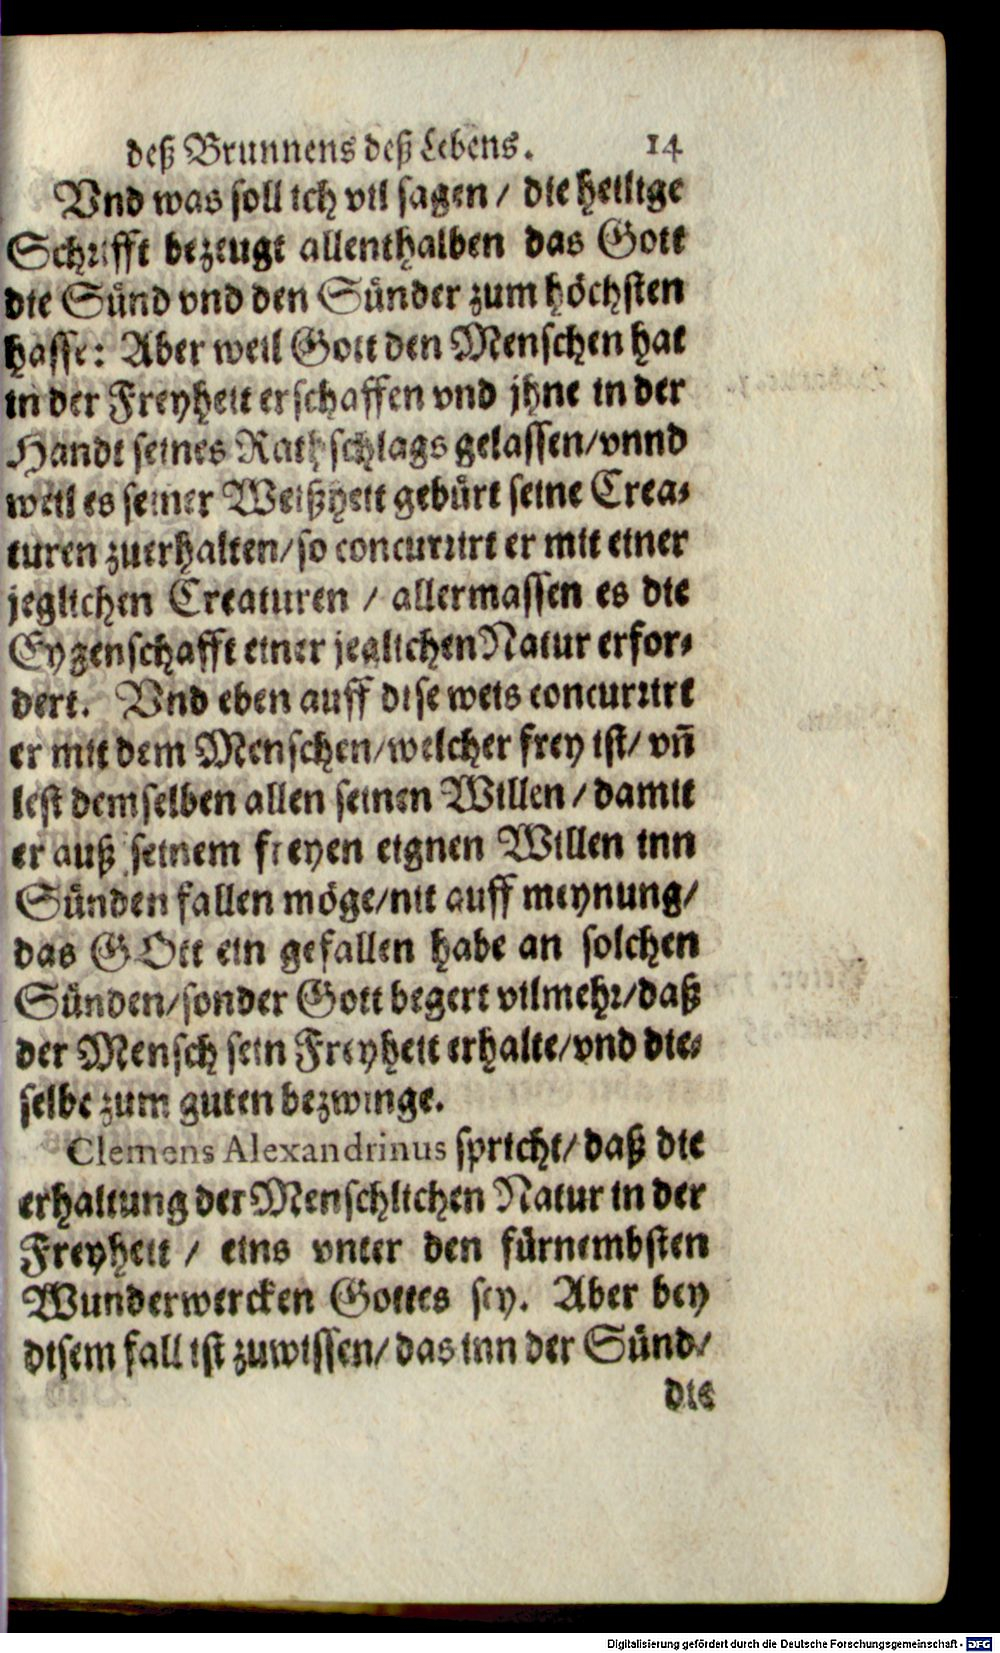 deß Brunnens deß Lebens. 14
Vnd was soll ich vil sagen / die heilige
Schrifft bezeugt allenthalben das Gott
die Sünd vnd den Sünder zum höchsten
hasse: Aber weil Gott den Menschen hat
in der Freyheit erschaffen vnd jhne in der
Handt seines Rathschlags gelassen/vnnd
weil es seiner Weißheit gebürt seine Crea-
turen zuerhalten/so concurrirt er mit einer
jeglichen Creaturen / allermassen es die
Eygenschafft einer jeglichen Natur erfor-
dert. Vnd eben auff dise weis concurrirt
er mit dem Menschen/welcher frey ist/ vn̄
lest demselben allen seinen Willen / damit
er auß seinem freyen eignen Willen inn
Sünden fallen möge/nit auff meynung/
das GOtt ein gefallen habe an solchen
Sünden/sonder Gott begert vilmehr/daß
der Mensch sein Freyheit erhalte/vnd die-
selbe zum guten bezwinge.
Clemens Alexandrinus spricht/daß die
erhaltung der Menschlichen Natur in der
Freyheit / eins vnter den fürnembsten
Wunderwercken Gottes sey. Aber bey
disem fall ist zuwissen/das inn der Sünd/
die
Digitalisierung gefördert durch die Deutsche Forschungsgemeinschaft - DFG